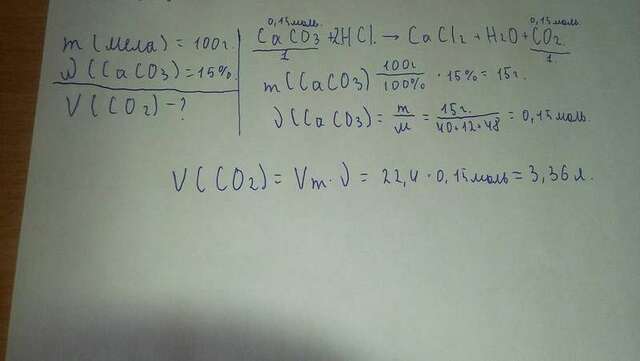 m(мела) = 100г.
ω(CaCO3) = 15%.
V(CO2) - ?
0,15моль. 0,15моль
CaCO3 + 2HCl. → CaCl2 + H2O + CO2.
1 1.
m(CaCO3) 100г/100% · 15% = 15г.
ν(CaCO3) = m/M = 15г./40+12+48 = 0,15моль.
V(CO2) = Vm · ν = 22,4 · 0,15моль = 3,36л.